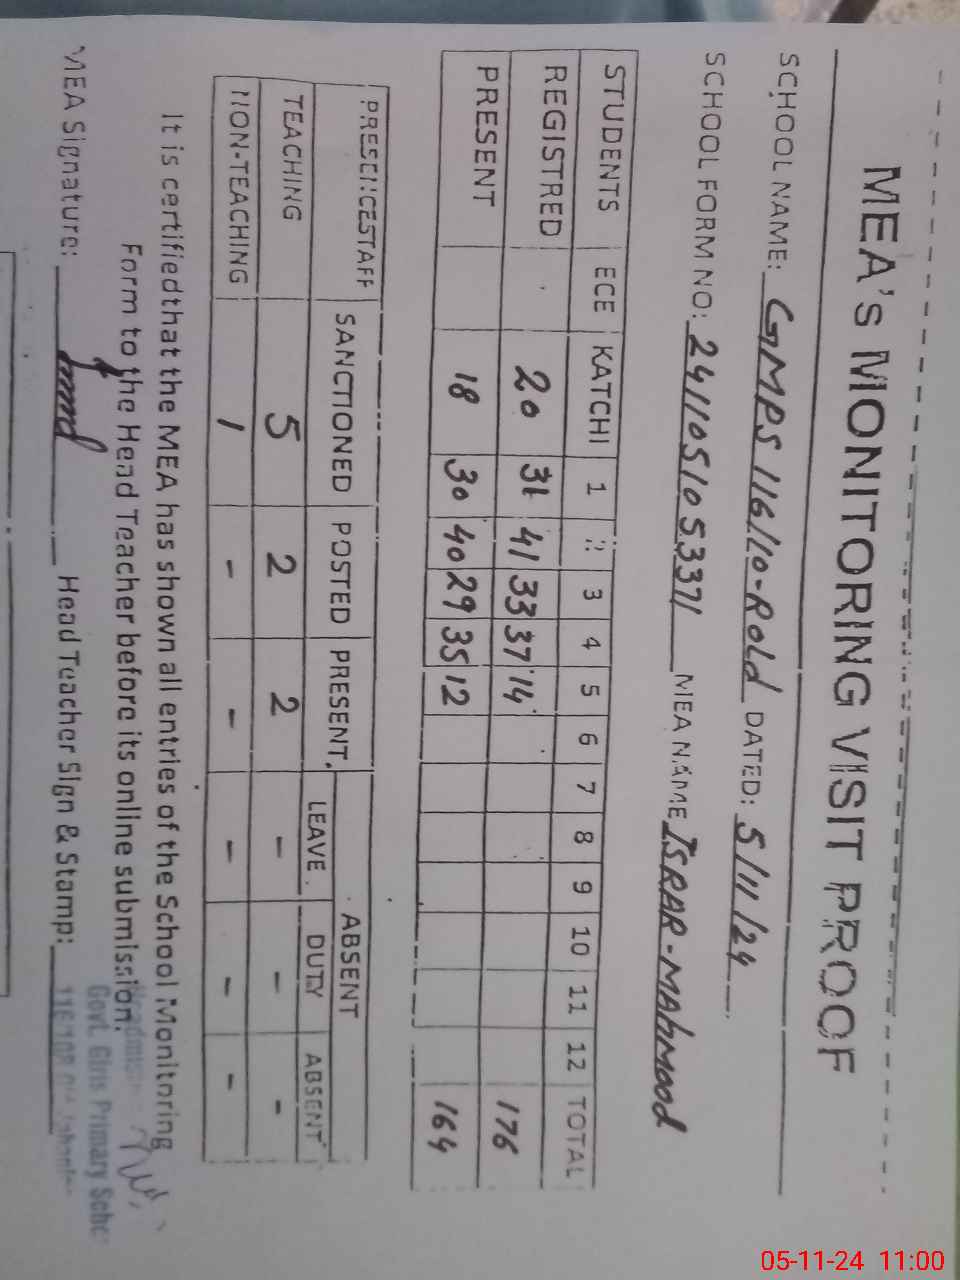 MEA'S MONITORING VISIT PROOF
SCHOOL NAME: GMPS 116/10-R old DATED: 5/11/24
SCHOOL FORM NO: 24110510 53371 MEA NAME ISRAR-MAhMood
STUDENTS ECE KATCHI 1 2 3 4 5 6 7 8 9 10 11 12 TOTAL
REGISTRED 20 31 41 33 37 14 176
PRESENT 18 30 40 29 35 12 164
PRESENCESTAFF SANCTIONED POSTED PRESENT ABSENT
LEAVE DUTY ABSENT
TEACHING 5 2 2 - - -
NON-TEACHING 1 - - - - -
It is certifiedthat the MEA has shown all entries of the School Monitoring
Form to the Head Teacher before its online submission.
MEA Signature: Head Teacher Sign & Stamp:
Govt. Girls Primary
05-11-24 11:00